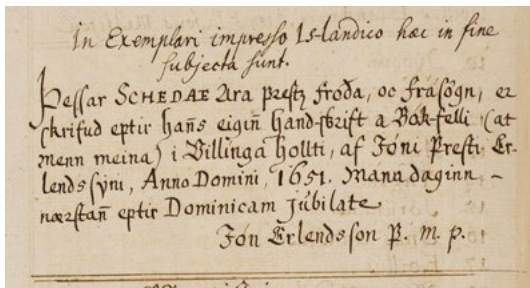 In Exemplari impresso Is-landico hæc in fine
subjecta sunt.
Þessar SCHEDAE Ara prestz froða, oc frásögn, er
skrifud eptir hans̄ eigin̄ hand-skrift a Bók-felli (at
menn meina) i Villinga hollti, af Jóni Presti Er-
lends syni, Anno Domini, 1651. Manu daginn –
nærstan̄ eptir Dominicam júbilate
Jón Erlends son P. m. p.